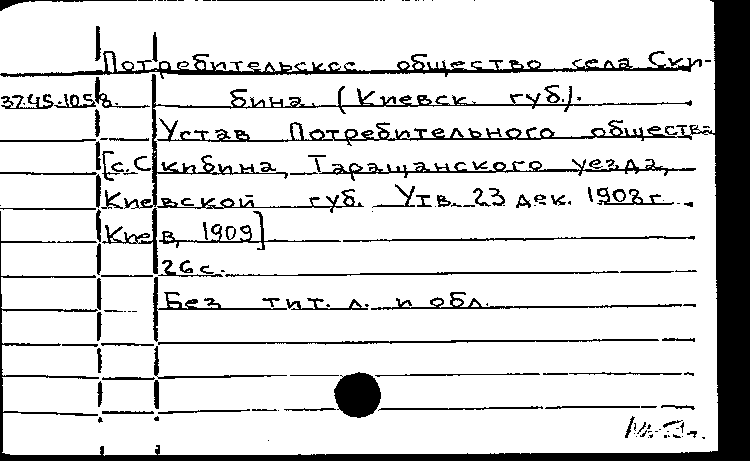 Потребительское общество села Ски-
37.45.1058. бина. (Киевск. губ.).
Устав Потребительного общества
[с. Скибина, Таращанского уезда,
Киевской губ. Утв. 23 дек. 1908 г.
Киев, 1909]
26 с.
Без тит. л. и обл.